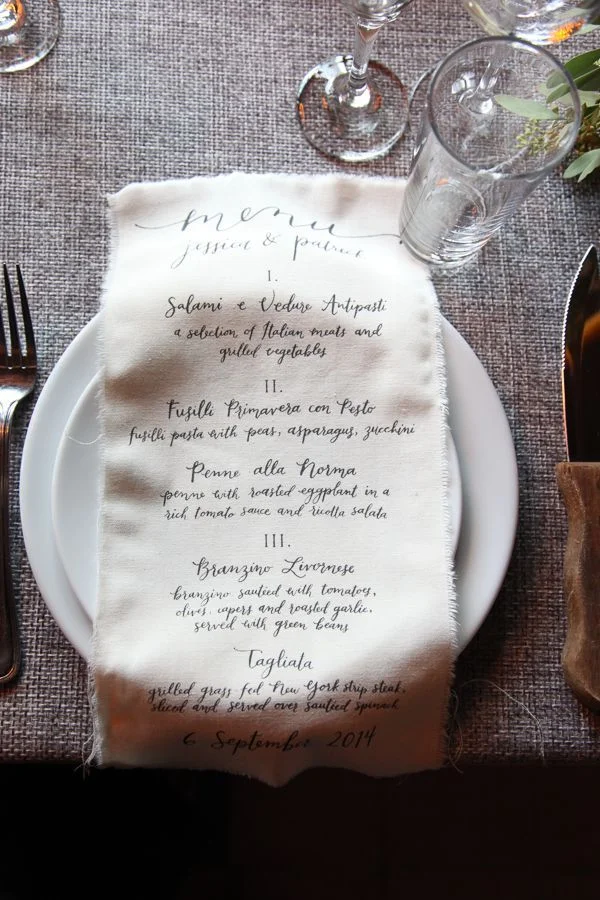 menu
jessica & patrick
I.
Salami e Vedure Antipasti
a selection of Italian meats and
grilled vegetables
II.
Fusilli Primavera con Pesto
fusilli pasta with peas, asparagus, zucchini
Penne alla Norma
penne with roasted eggplant in a
rich tomato sauce and ricotta salata
III.
Branzino Livornese
branzino sautéed with tomatoes,
olives, capers and roasted garlic,
served with green beans
Tagliata
grilled grass fed New York strip steak,
sliced and served over sautéed spinach
6 September 2014